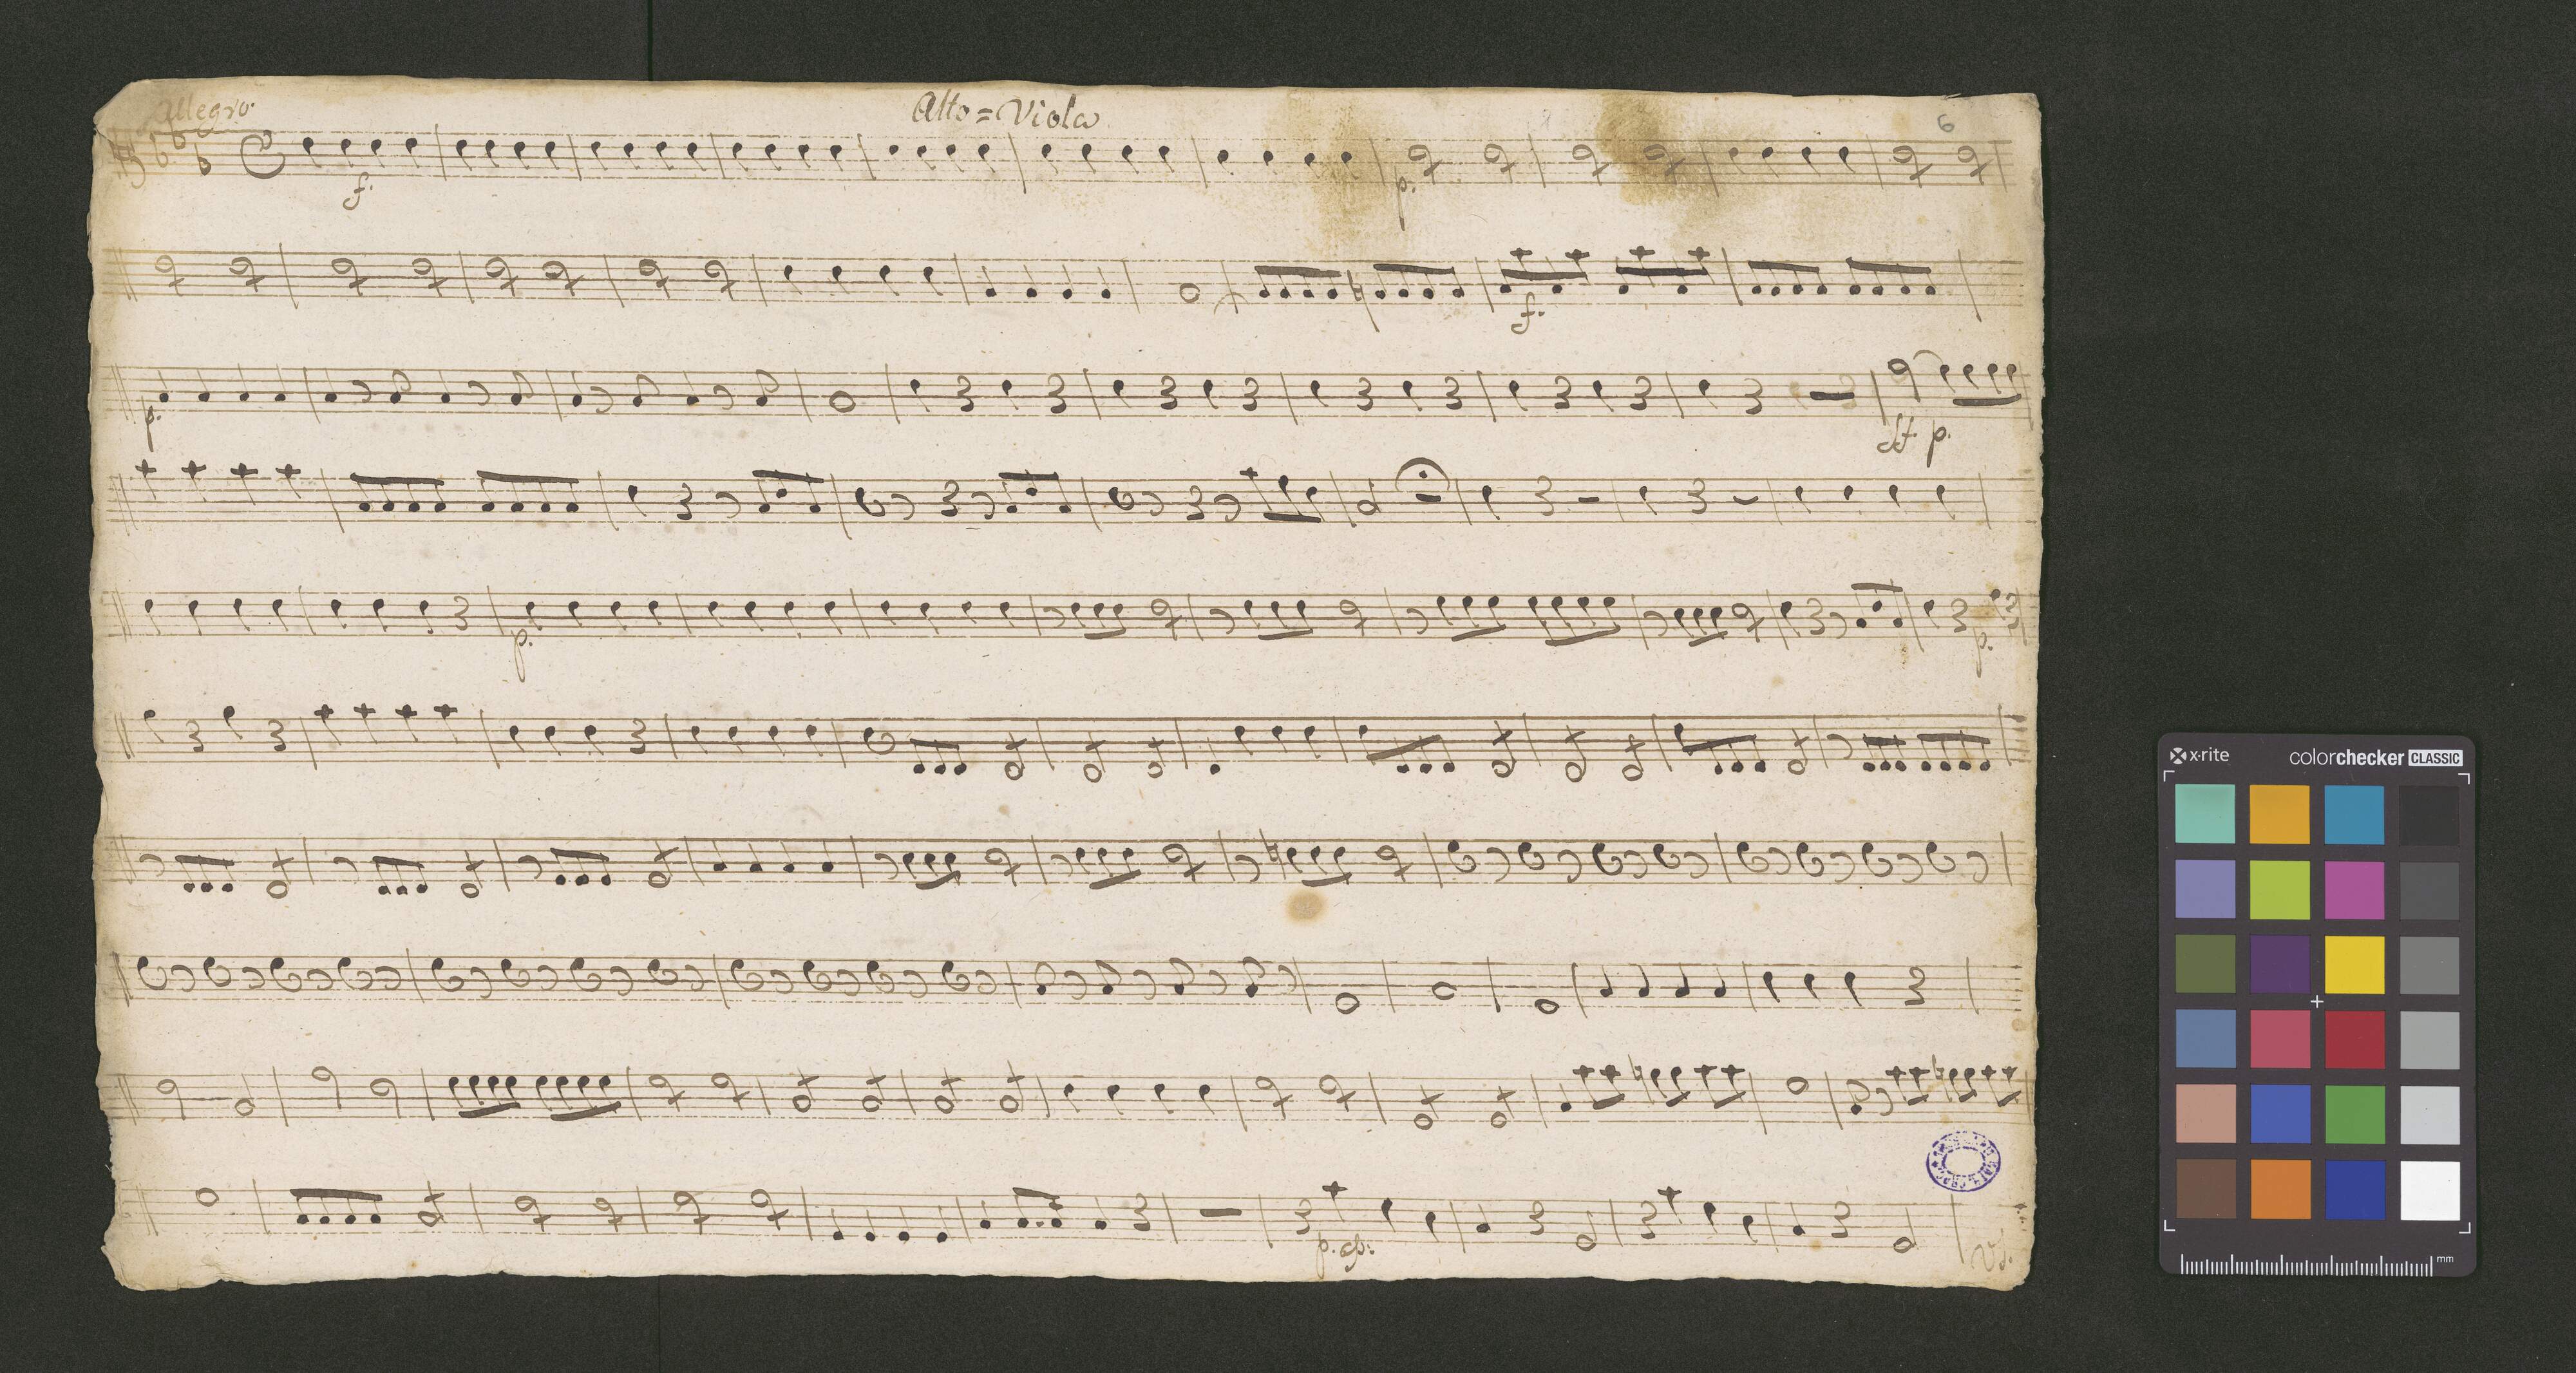 Allegro.
Alto=Viola
6
f.
p.
f.
p.
sf. p.
p.
p.
p. sp:
Vs.
x-rite
colorchecker CLASSIC
mm